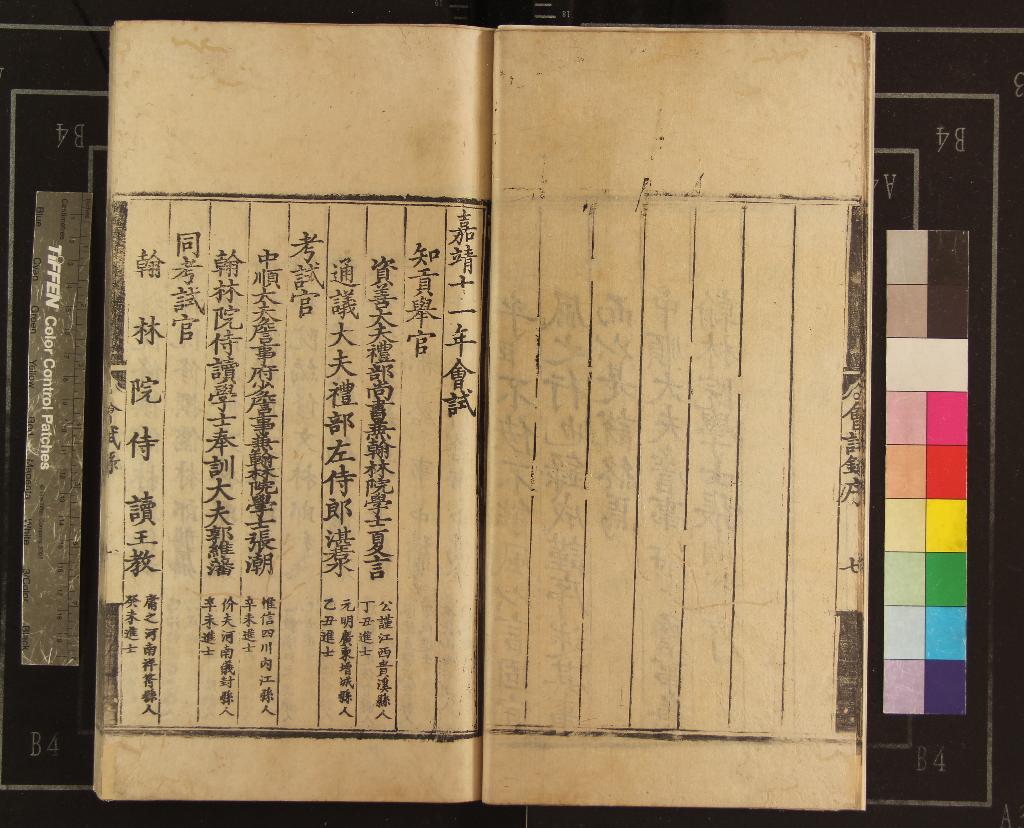 會試錄序
七
嘉靖十一年會試
知貢舉官
資善大夫禮部尚書兼翰林院學士夏言
公謹江西貴溪縣人
丁丑進士
通議大夫禮部左侍郎湛若水
元明廣東增城縣人
乙丑進士
考試官
中順大夫詹事府少詹事兼翰林院學士張潮
惟信四川內江縣人
辛未進士
翰林院侍讀學士奉訓大夫郭維藩
价夫河南儀封縣人
辛未進士
同考試官
翰林院侍讀王教
庸之河南祥符縣人
癸未進士
會試錄
TIFFEN Color Control Patches
B4
B4
B4
B4